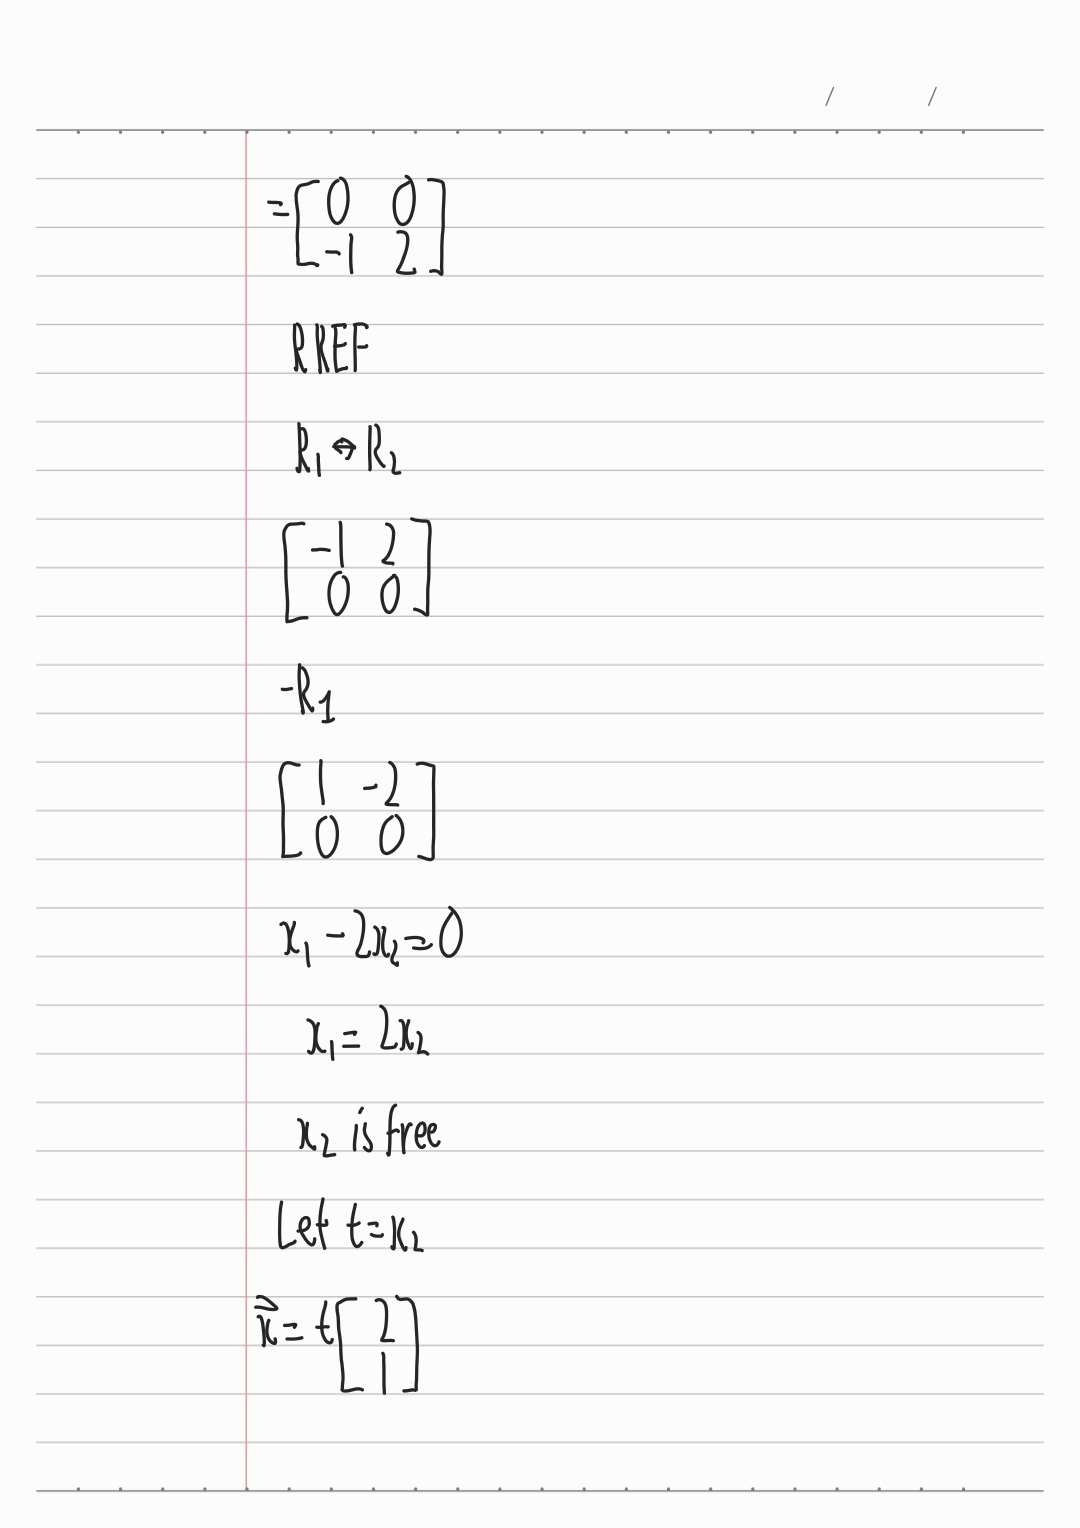 = [ 0 0
-1 2 ]
RREF
R₁ ↔ R₂
[ -1 2
0 0 ]
-R₁
[ 1 -2
0 0 ]
x₁ - 2x₂ = 0
x₁ = 2x₂
x₂ is free
Let t = x₂
x⃗ = t [ 2
1 ]